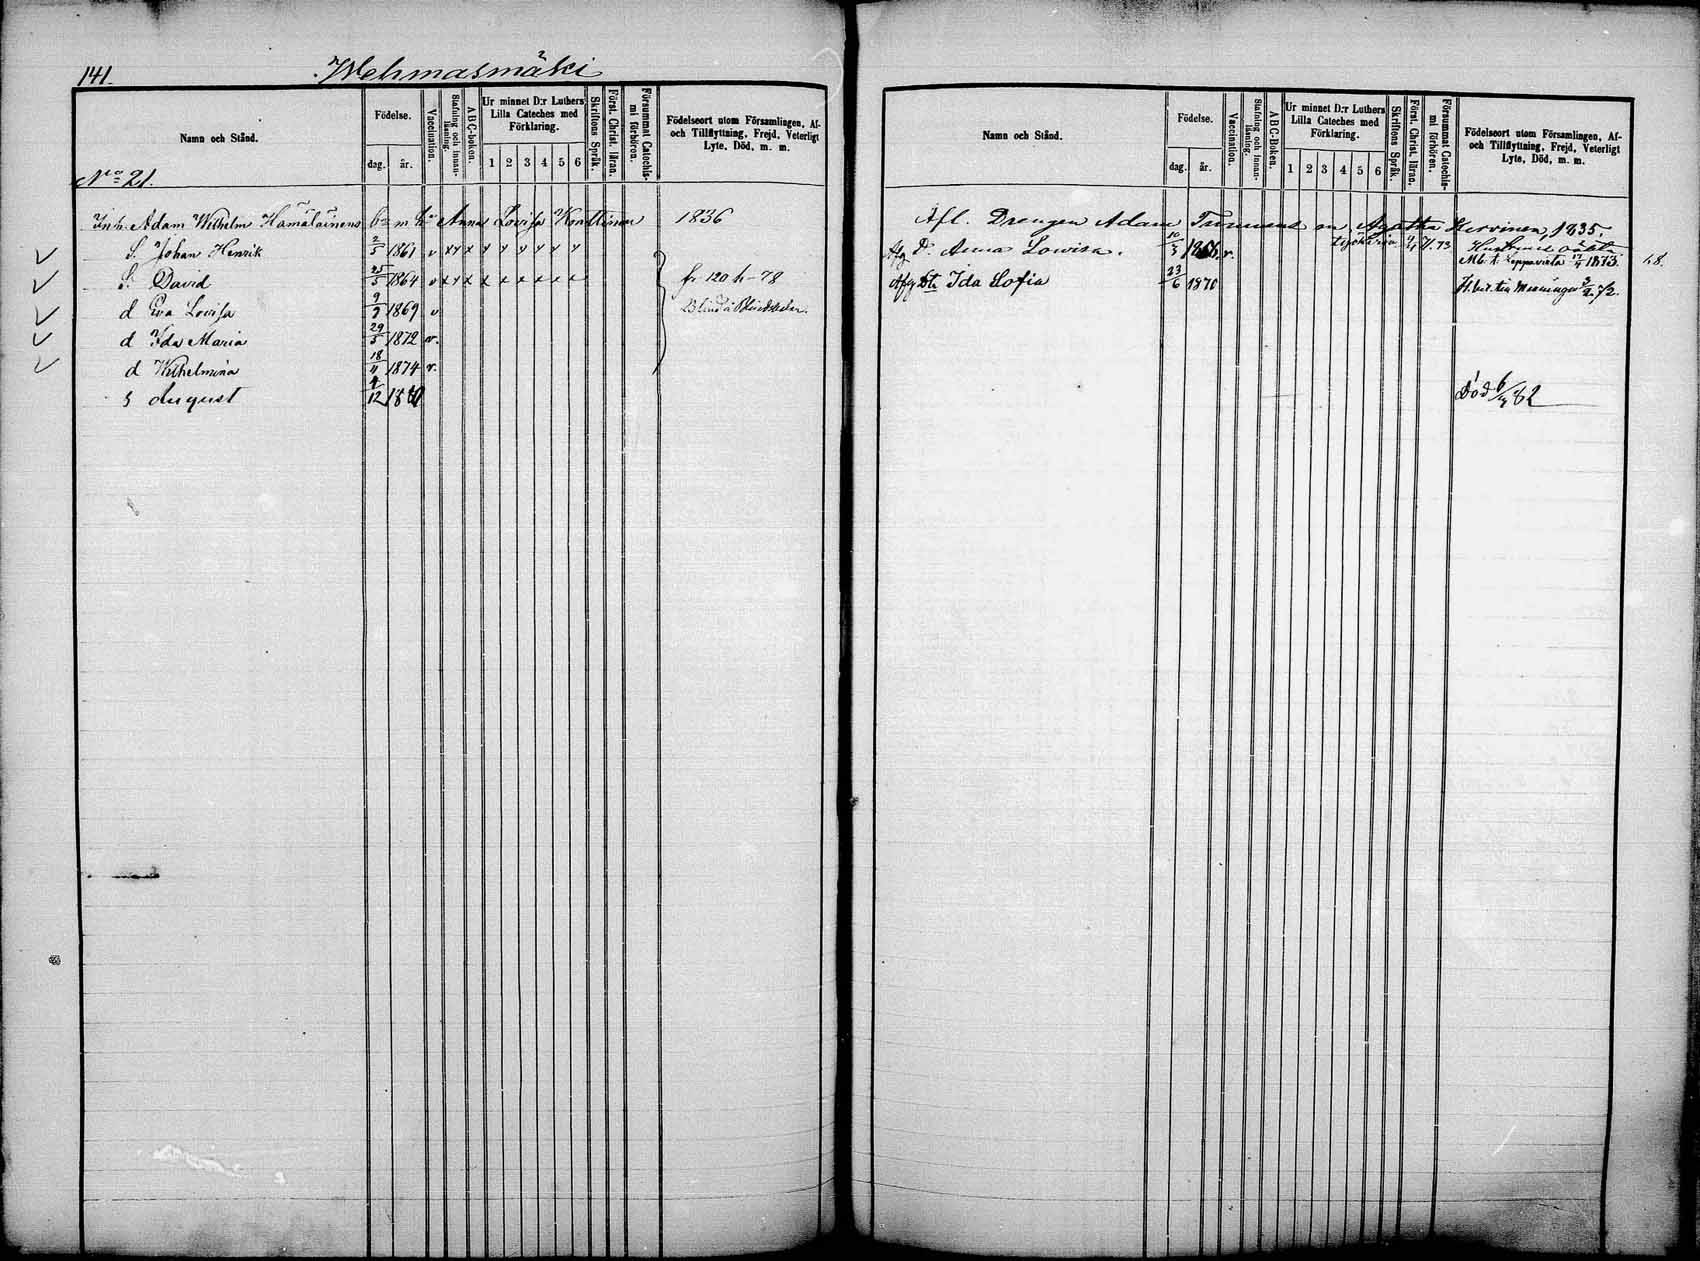 141.
Wehmasmäki
Namn och Stånd.
Födelse.
dag.
år.
Vaccination.
Stafning och innan-läsning.
A B C-boken.
Ur minnet D:r Luthers
Lilla Cateches med
Förklaring.
1 2 3 4 5 6
Skriftens Språk.
Först. Christ. läran.
Försummat Catechis-mi förhören.
Födelseort utom Församlingen, Af-
och Tillflyttning, Frejd, Veterligt
Lyte, Död, m. m.
No 21.
Inh. Adam Wilhelm Hämäläinens b m h Anna Lovisa Konttinen 1836
S. Johan Henrik 2/5 1861 v x x x x x x x x x
S. David 25/5 1864 v x x x x x x x x x fr 120 h - 78
d Eva Lovisa 9/9 1869 v Blind å
d Ida Maria 29/5 1872 v.
d Wilhelmina 18/11 1874 v.
s August 4/12 1880
Namn och Stånd.
Födelse.
dag.
år.
Vaccination.
Stafning och innan-läsning.
A B C-Boken.
Ur minnet D:r Luthers
Lilla Cateches med
Förklaring.
1 2 3 4 5 6
Skriftens Språk.
Först. Christ. läran.
Försummat Catechis-mi förhören.
Födelseort utom Församlingen, Af-
och Tillflyttning, Frejd, Veterligt
Lyte, Död, m. m.
Afl. Drengen Adam m. Agatha Kervinen, 1835.
Afg D. Anna Lowisa. 10/3 1866. v.
Mb. t. Leppävirta 17/4 1873. 48.
Afg Dtr Ida Sofia 23/6 1870
Död 6/3 82